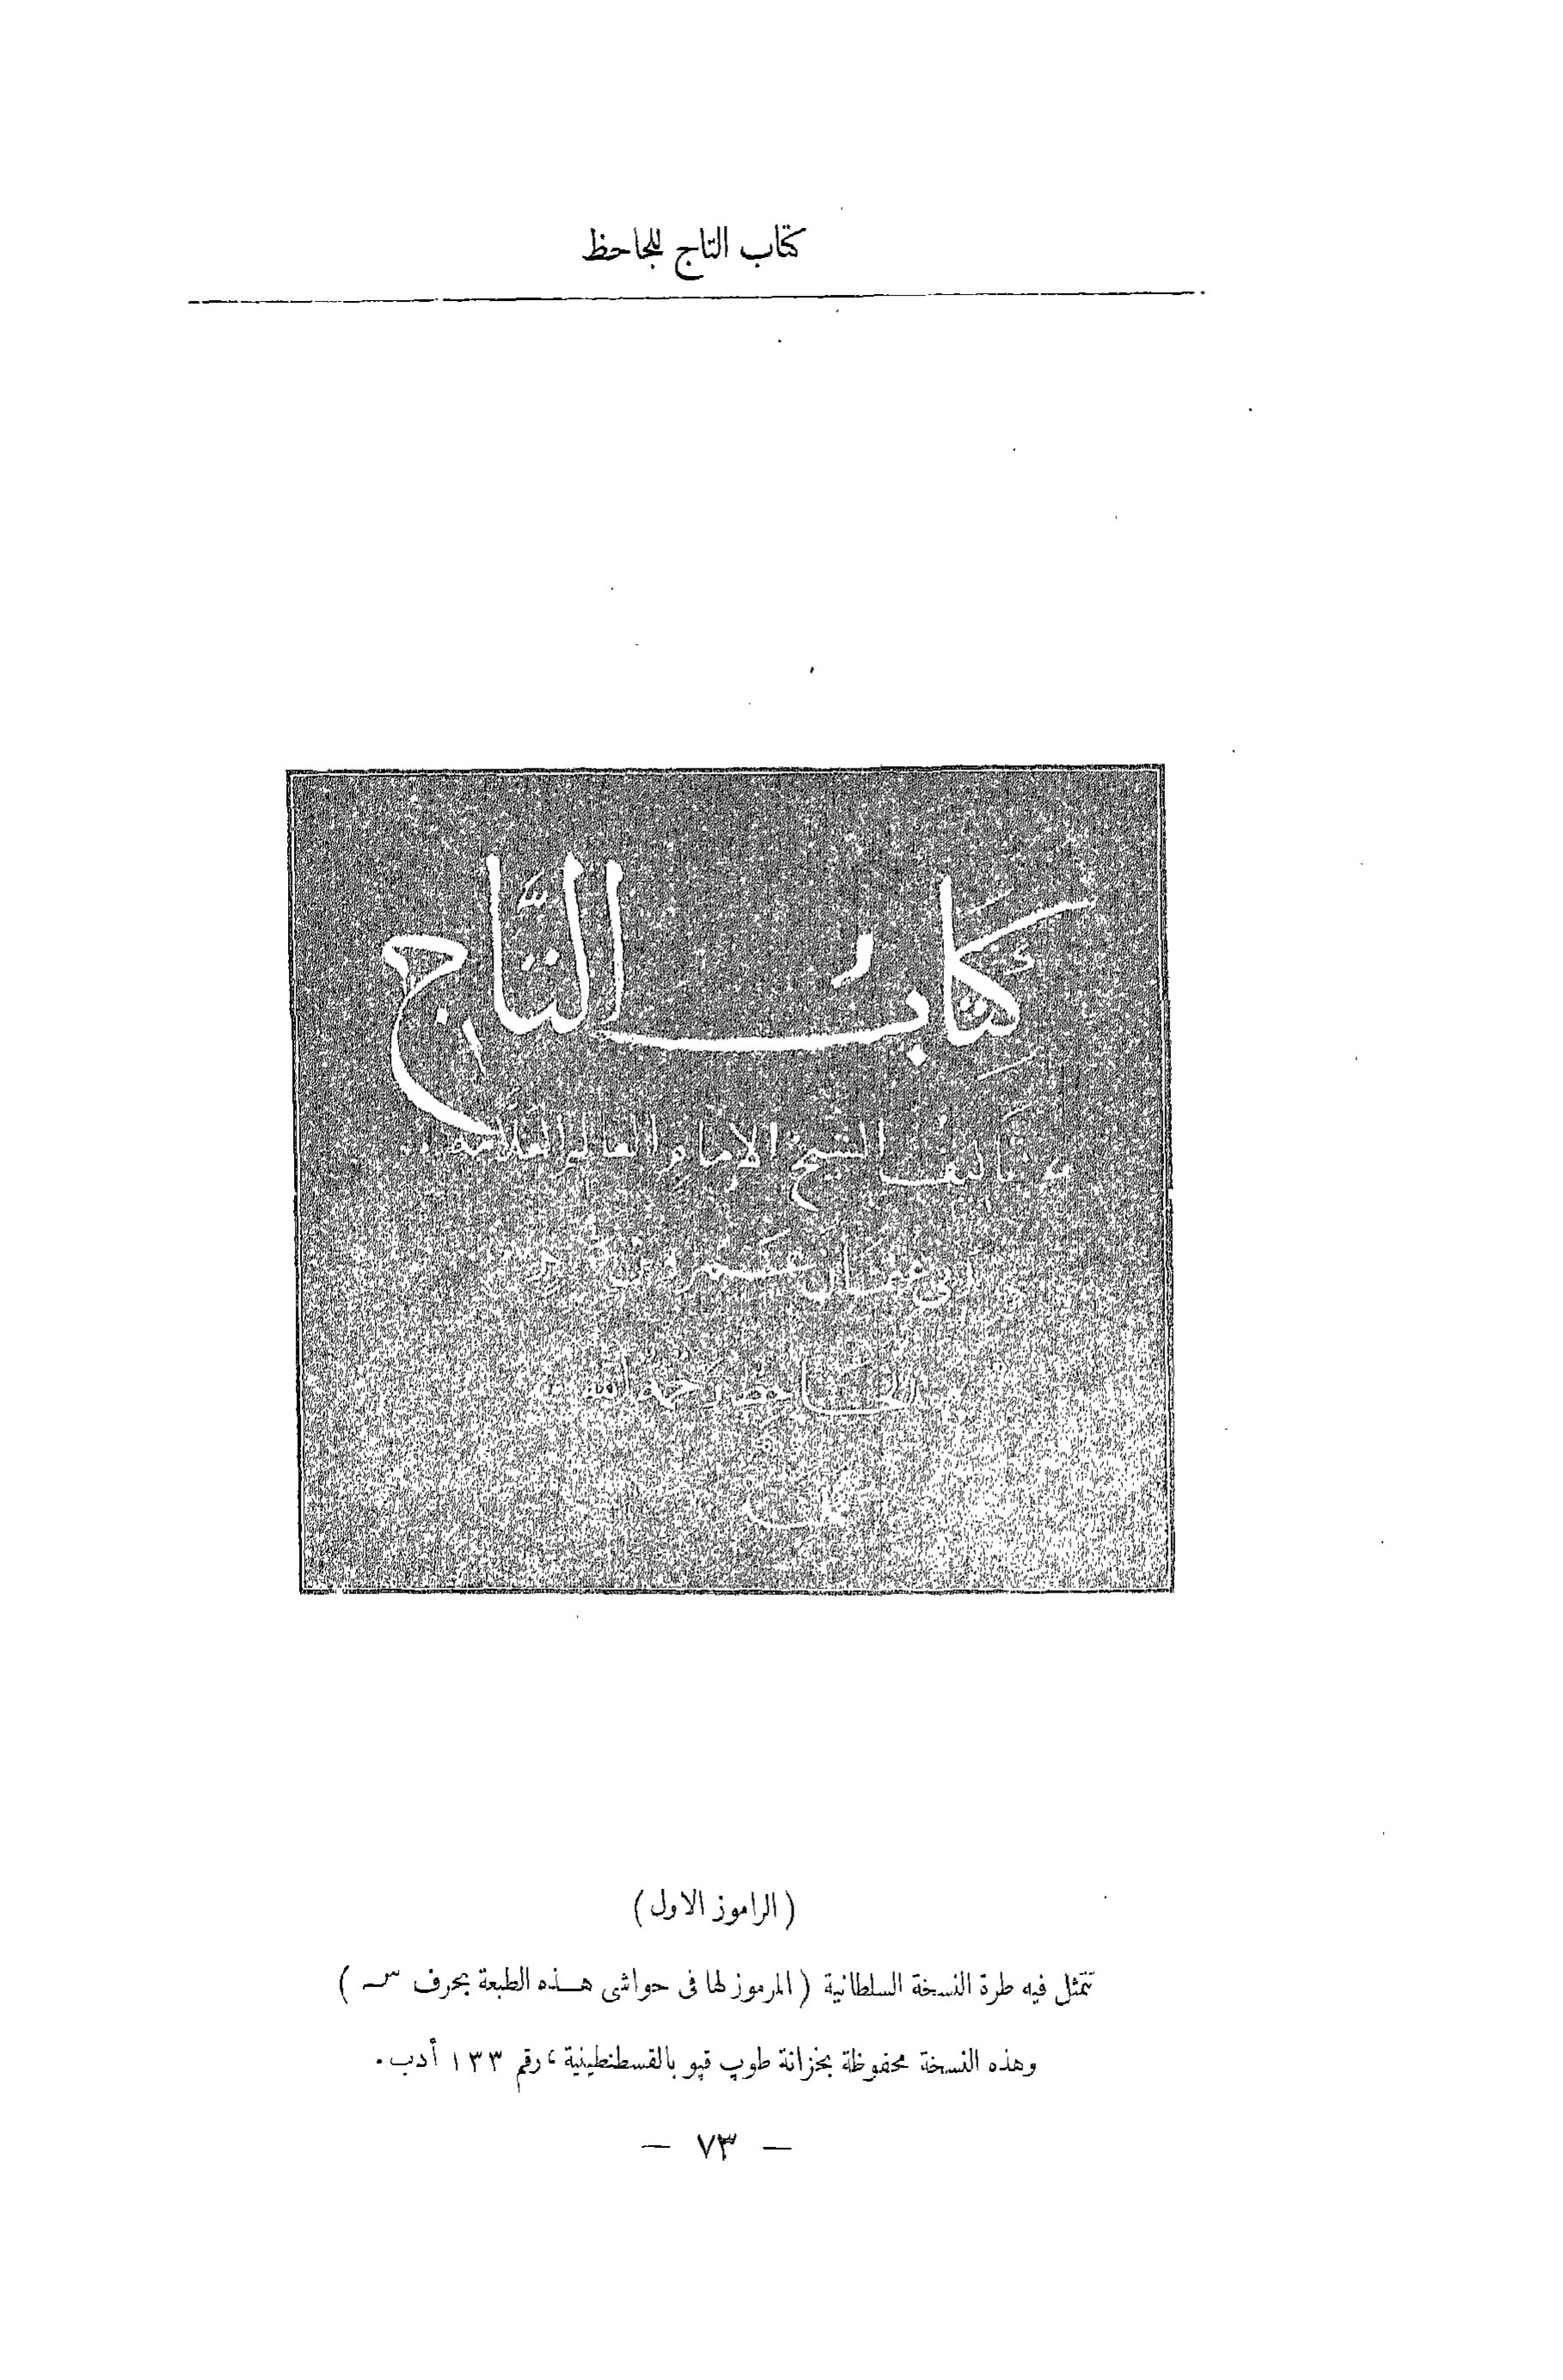 كتاب التاج للجاحظ
كِتَابُ التَّاجِ
تأليف الشيخ الإمام العالم العلامة
أبي عثمان عمرو بن بحر
الجاحظ رحمه الله
( الراموز الاول )
تتمثل فيه طرة النسخة السلطانية ( المرموز لها فى حواشى هـذه الطبعة بحرف سـ )
وهذه النسخة محفوظة بخزانة طوپ قپو بالقسطنطينية ، رقم ١٣٣ أدب .
— ٧٣ —